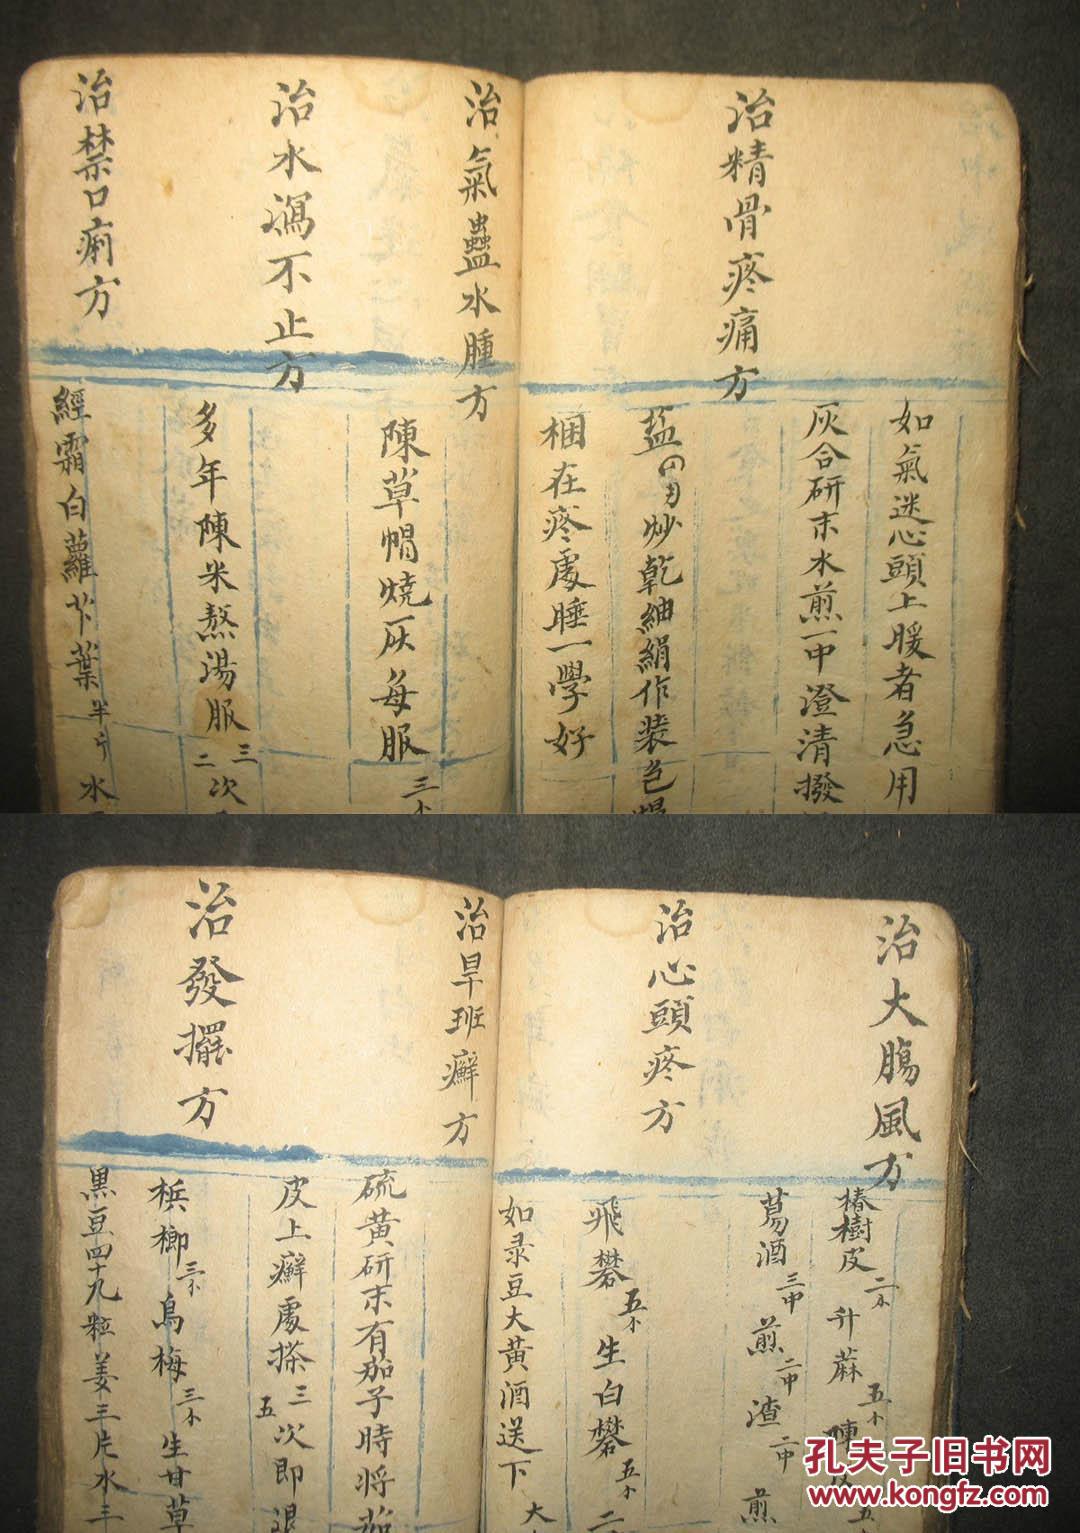 如氣迷心頭上暖者急用
灰合研末水煎一中澄清撥
治精骨疼痛方
盐四两炒乾紬絹作装包
梱在疼處睡一學好
治氣蠱水腫方
陳草帽燒灰每服三
治水瀉不止方
多年陳米熬湯服二三次
治禁口痢方
經霜白蘿卜葉半斤水
治大腸風方
椿樹皮二小升蔴五小陳皮五
蔦酒三中煎二中渣二中煎
治心頭疼方
飛礬五小生白礬五小二
如录豆大黄酒送下大
治旱班癬方
硫黄研末有茄子時將茄
皮上癬處搽三五次即退
治發擺方
梹榔三小烏梅三小生甘草
黑豆四十九粒姜三片水三
孔夫子旧书网
www.kongfz.com